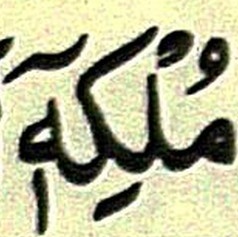 مُلْكِهٖۤ